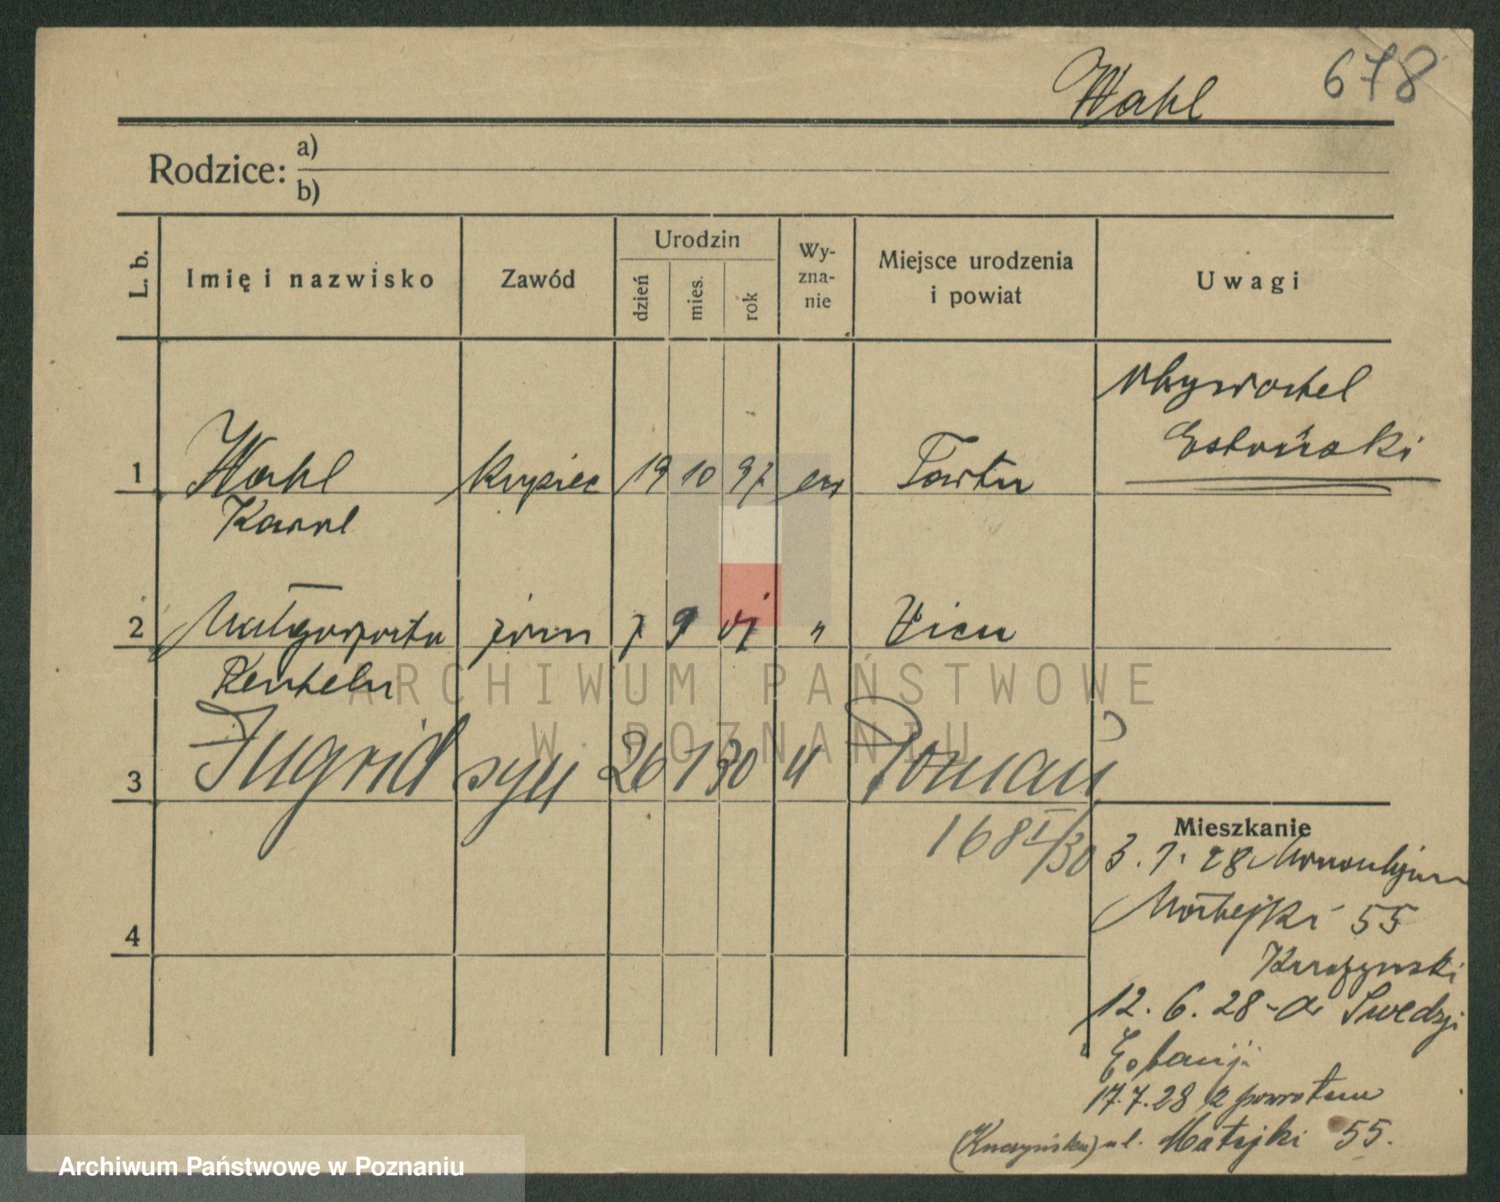 Wahl 678
Rodzice: a)
b)
L. b. Imię i nazwisko Zawód Urodzin dzień mies. rok Wy-zna-nie Miejsce urodzenia i powiat Uwagi
obywatel
Estoński
1 Wahl kupiec 19 10 97 ew Tartu
Karol
2 Małgorzata żona 7 9 07 "
3 Ingrid syn 26 1 30 " Poznań
168 I/30
Mieszkanie
3. 7. 28
Matejki 55
4
12. 6. 28 - do
Estonji
17.7.28 z powrotem
ul. Matejki 55.
ARCHIWUM PAŃSTWOWE
W POZNANIU
Archiwum Państwowe w Poznaniu